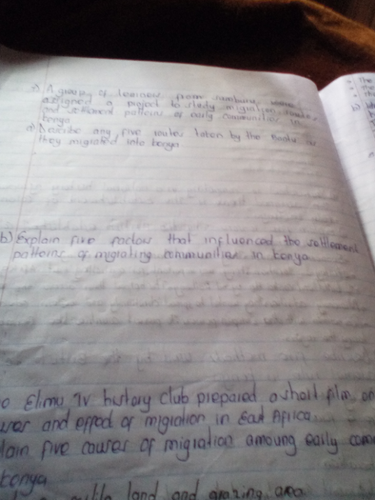 A group of learners from samburu were
assigned a project to study migration routes
and settlement patterns of early communities in
kenya
a) Describe any five routes taken by the Bantu as
they migrated into kenya
b) Explain five factors that influenced the settlement
patterns of migrating communities in kenya
Elimu TV history club prepared a short film on
and effect of migration in East Africa.
five causes of migration amoung early
kenya
land and grazing area